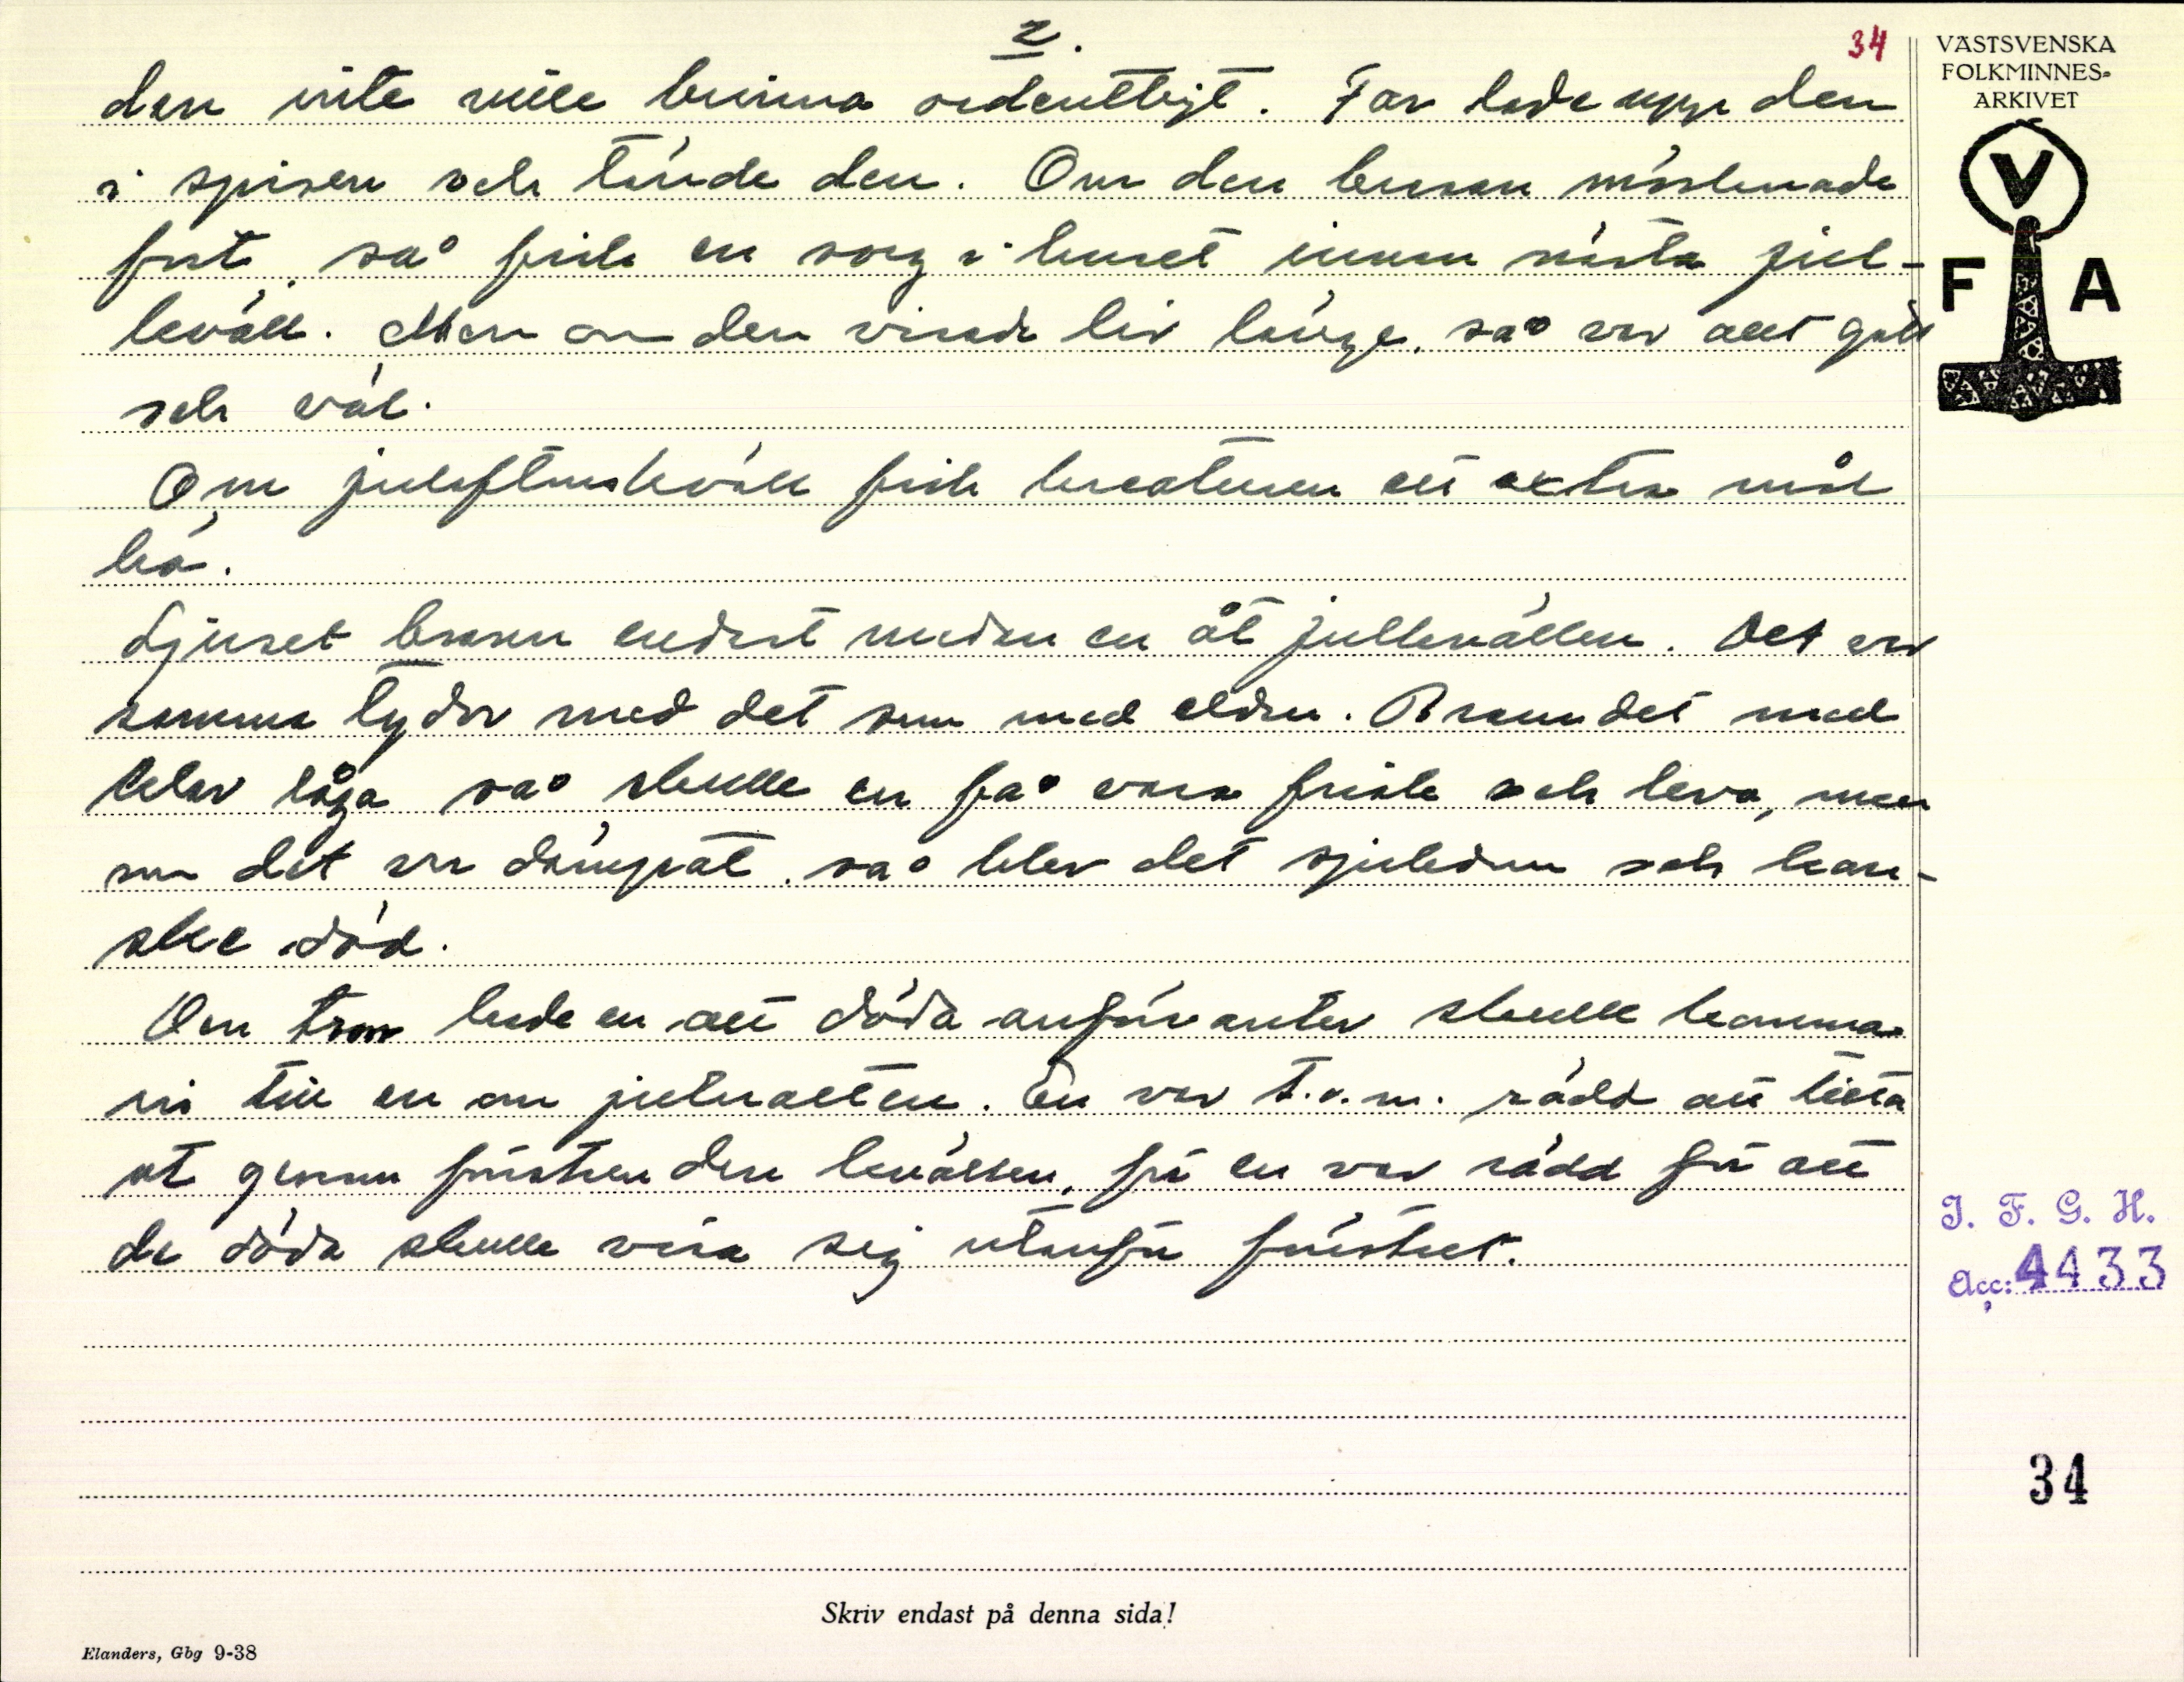 2.
34
VÄSTSVENSKA
FOLKMINNES-
ARKIVET
V
F A
den inte ville brinna ordentligt. Far lade upp den
i spisen och tände den. Om den brasan mörknade
fort, så fick en sorg i huset innan nästa jul-
kväll. Men om den visade liv länge, så var allt gott
och väl.
Om julaftonskväll fick kreaturen ett extra mål
hö.
Ljuset brann endast medan en åt julkvällen. Det var
samma tydor med det som med elden. Brann det med
klar låga så skulle en få vara frisk och leva, men
om det var dämpat, så blev det sjukdom och kan-
ske död.
Om tron hade en att döda anförvanter skulle komma
in till en om julnatten. En var t.o.m. rädd att titta
ut genom fönstren den kvällen, för en var rädd för att
de döda skulle visa sig utanför fönstret.
I. F. G. H.
Acc: 4433
34
Skriv endast på denna sida!
Elanders, Gbg 9-38